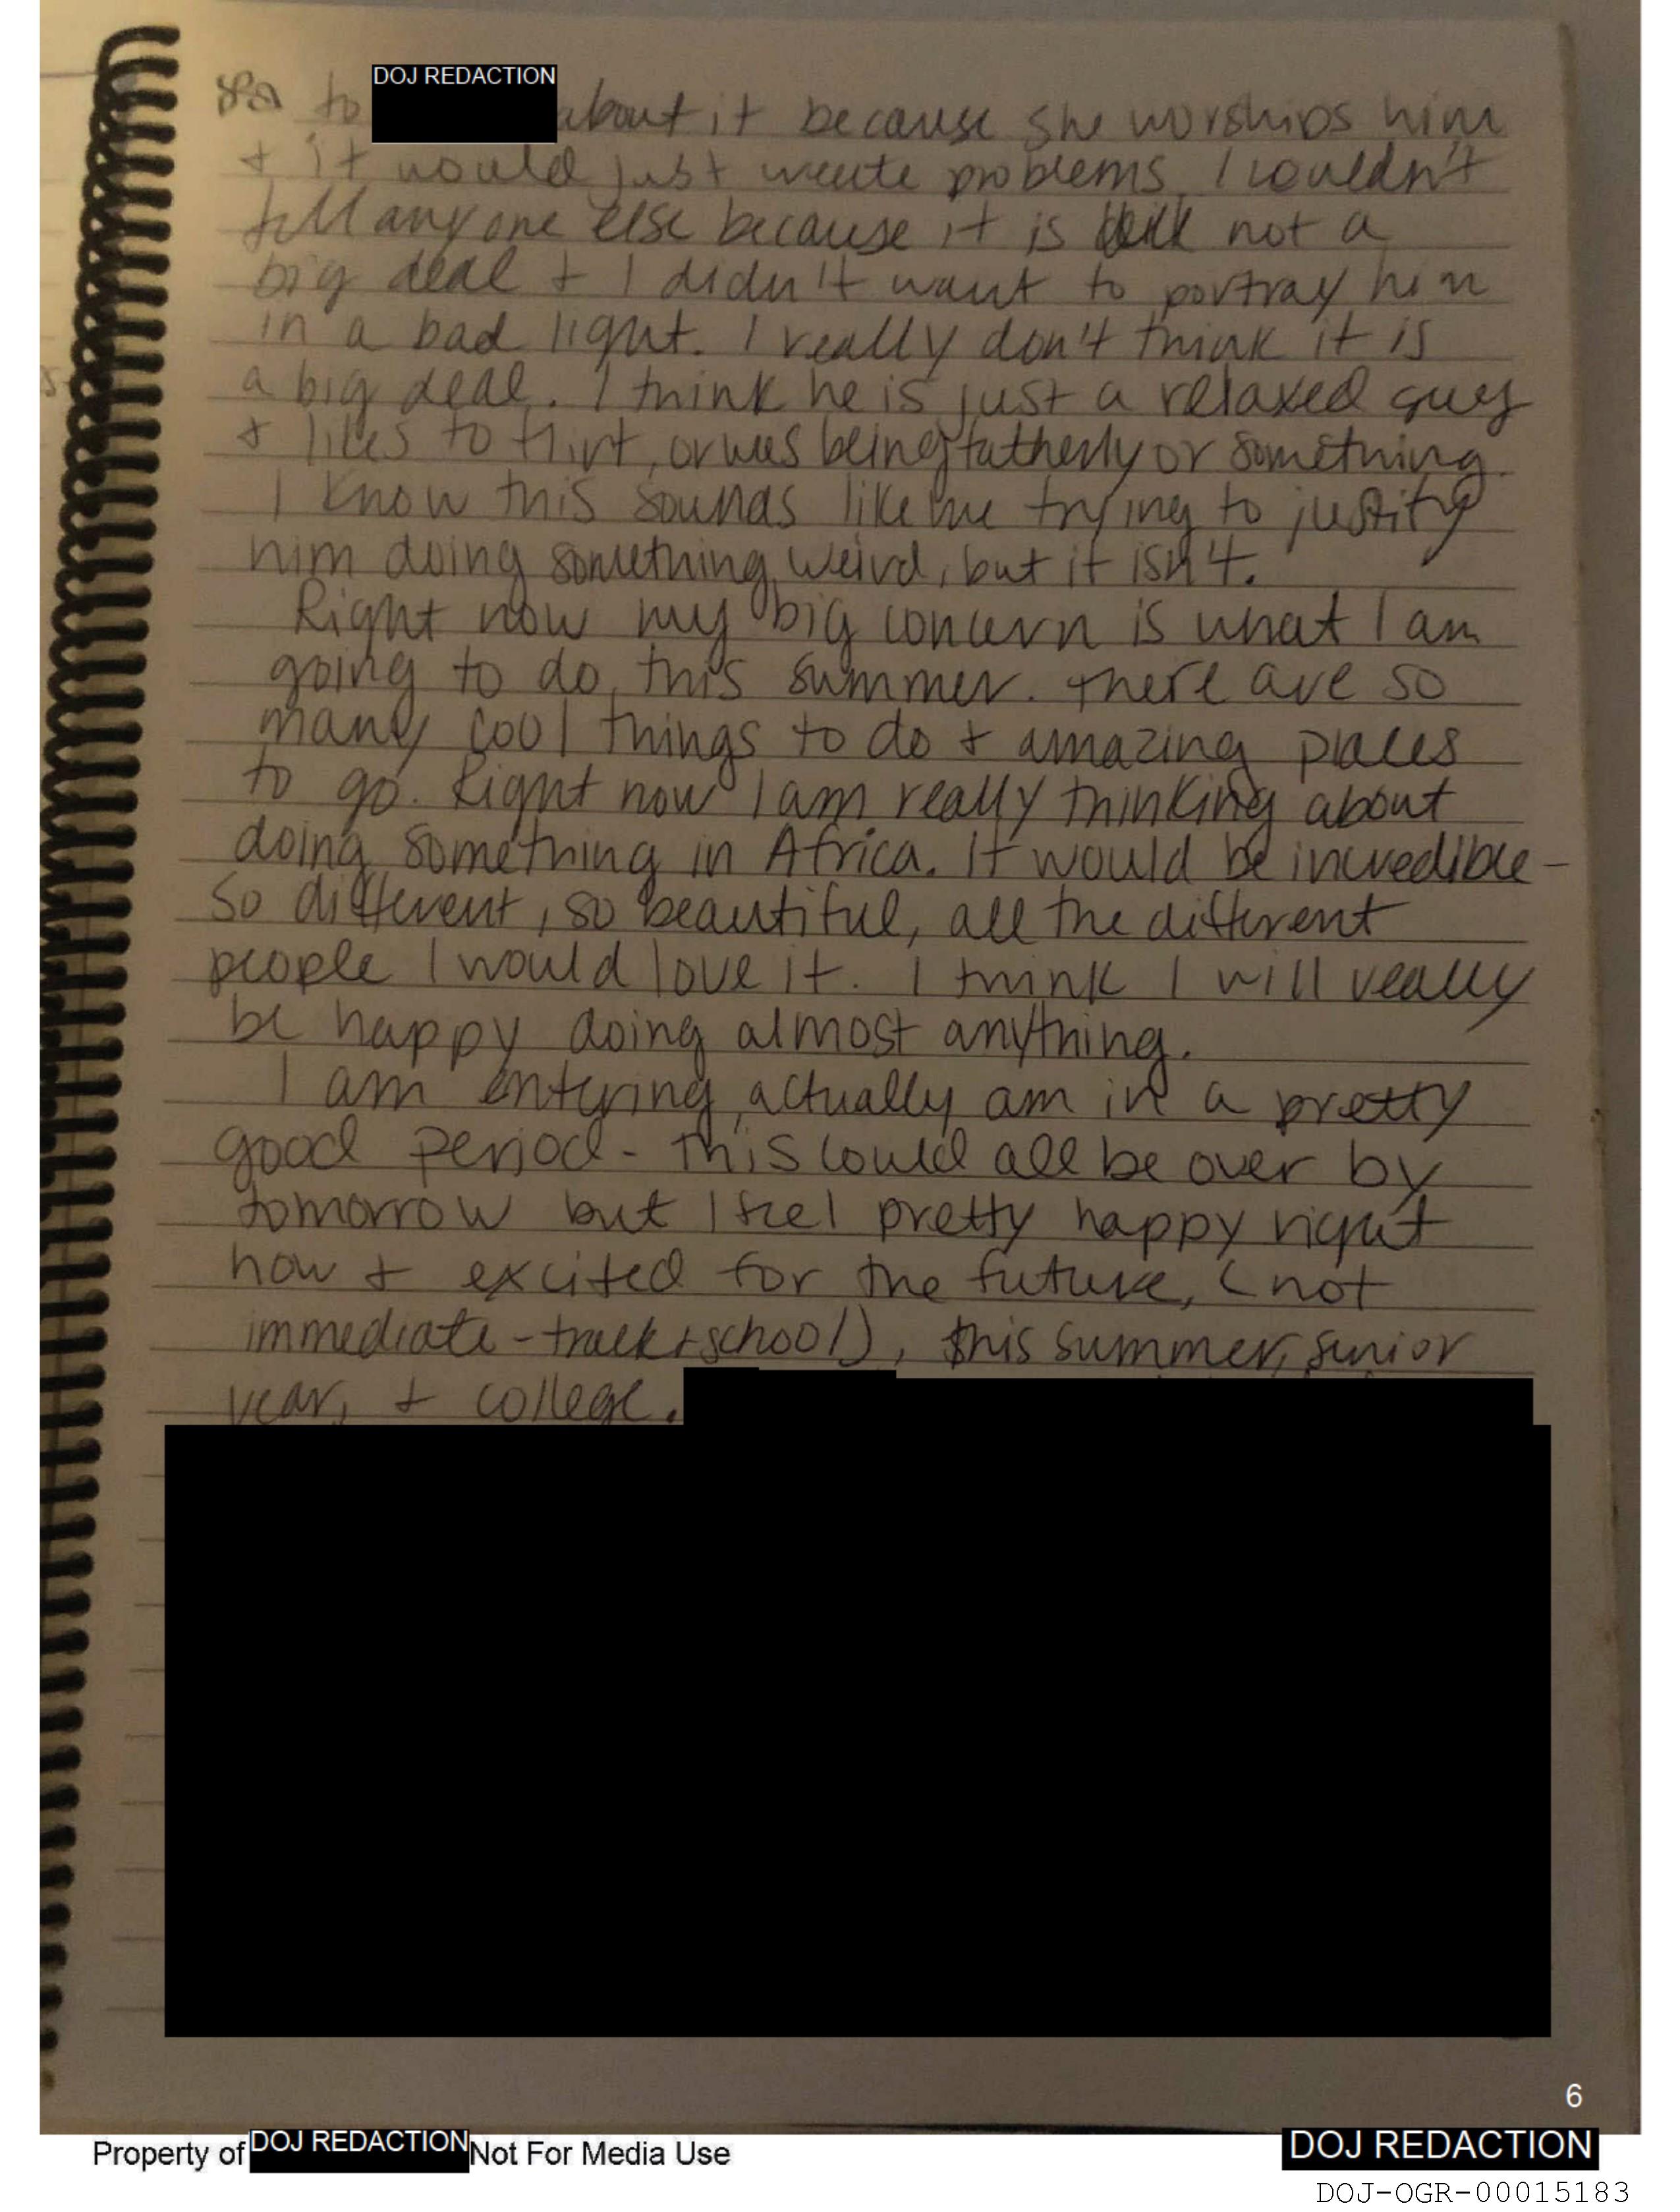 to DOJ REDACTION about it because she worships him
+ it would just create problems. I couldn't
tell anyone else because it is not a
big deal + I didn't want to portray him
in a bad light. I really don't think it is
a big deal. I think he is just a relaxed guy
+ likes to flirt, or was being fatherly or something.
I know this sounds like me trying to justify
him doing something weird, but it isn't.
Right now my big concern is what I am
going to do this summer. There are so
many cool things to do + amazing places
to go. Right now I am really thinking about
doing something in Africa. It would be incredible -
so different, so beautiful, all the different
people I would love it. I think I will really
be happy doing almost anything.
I am entering, actually am in a pretty
good period - this could all be over by
tomorrow but I feel pretty happy right
now + excited for the future, (not
immediate - track + school), this summer, junior
year, + college.
6
Property of DOJ REDACTION Not For Media Use
DOJ REDACTION
DOJ-OGR-00015183